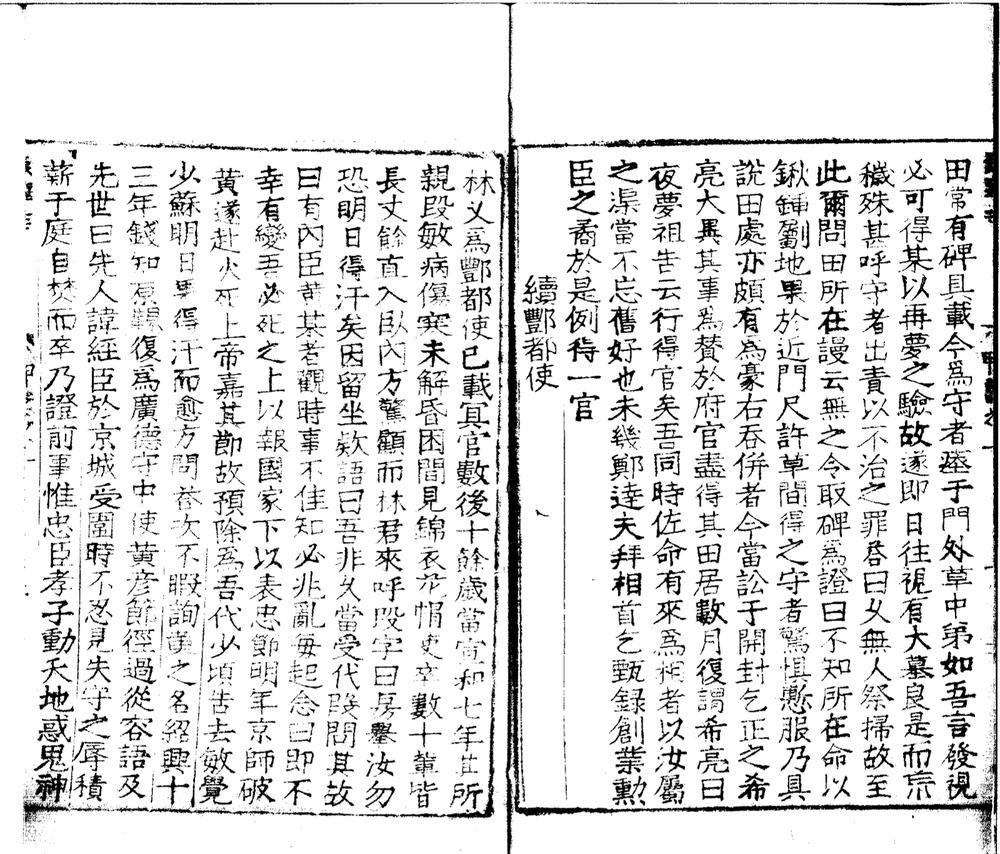 田常有碑具載今為守者𦵏于門外草中第如吾言發視
必可得某以再夢之驗故遂即日往視有大墓良是而荒
穢殊甚呼守者出責以不治之罪荅曰久無人祭掃故至
此爾問田所在謾云無之令取碑為證曰不知所在命以
鍬鍤劚地果於近門尺許草間得之守者驚惧慙服乃具
說田處亦頗有為豪右吞併者今當訟于開封乞正之希
亮大異其事為贊於府官盡得其田居數月復謂希亮曰
夜夢祖告云行得官矣吾同時佐命有來為相者以汝屬
之渠當不忘舊好也未幾鄭達夫拜相首乞甄録創業勲
臣之裔於是例得一官
續酆都使
林乂為酆都使已載冥官數後十餘歲當宣和七年其所
親段敏病傷寒未解昏困間見錦衣花帽吏卒數十輩皆
長丈餘直入臥內方驚顧而林君來呼段字曰房舉汝勿
恐明日得汗矣因留坐欵語曰吾非久當受代段問其故
曰有內臣黃某者觀時事不佳知必兆亂每起念曰即不
幸有變吾必死之上以報國家下以表忠節明年京師破
黃遂赴火死上帝嘉其節故預除為吾代少頃告去敏覺
少蘇明日果得汗而愈方問荅次不暇詢黃之名紹興十
三年錢知原鞹復為廣德守中使黃彥節徑過從容語及
先世曰先人諱經臣於京城受圍時不忍見失守之辱積
薪于庭自焚而卒乃證前事惟忠臣孝子動天地惑鬼神